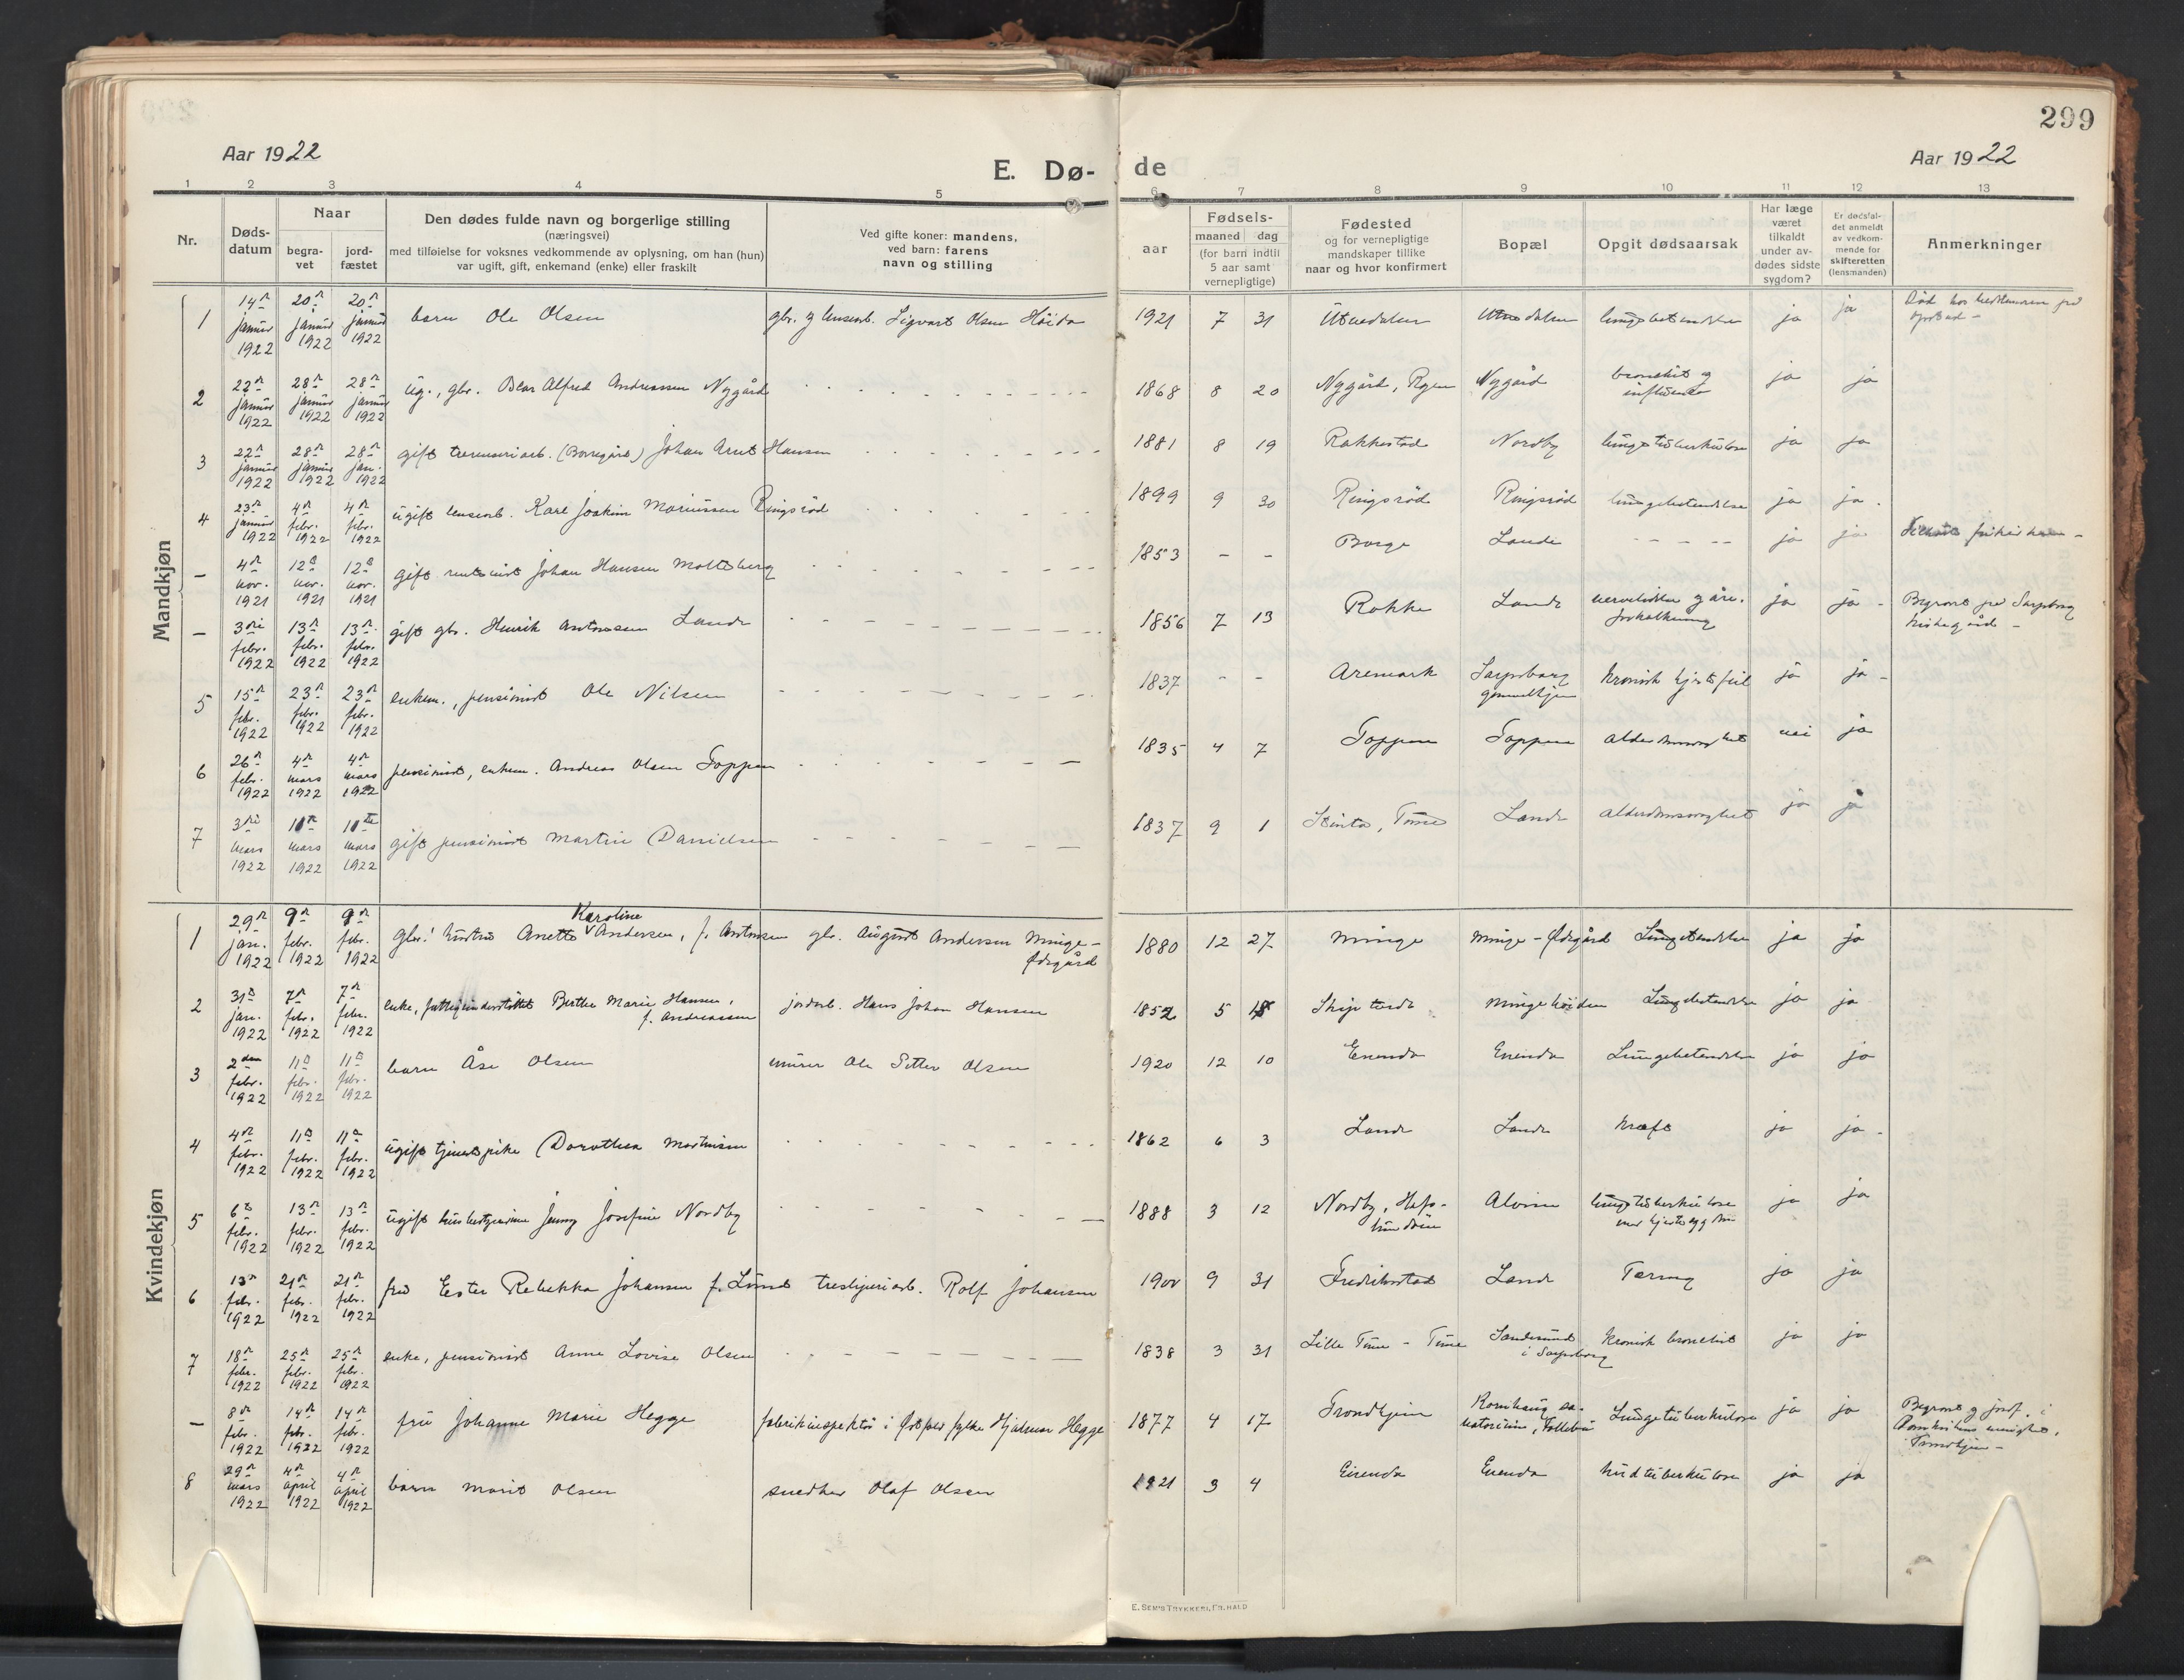 299
Aar 1922
E. Dø-
de
Aar 1922
1 2 3 4 5 6 7 8 9 10 11 12 13
Nr.
Døds-
datum
Naar
begra-
vet
jord-
fæstet
Den dødes fulde navn og borgerlige stilling
(næringsvei)
med tilføielse for voksnes vedkommende av oplysning, om han (hun)
var ugift, gift, enkemand (enke) eller fraskilt
Ved gifte koner: mandens,
ved barn: farens
navn og stilling
Fødsels-
aar
maaned dag
(for barn indtil
5 aar samt
vernepligtige)
Fødested
og for vernepligtige
mandskaper tillike
naar og hvor konfirmert
Bopæl
Opgit dødsaarsak
Har læge
været
tilkaldt
under av-
dødes sidste
sygdom?
Er dødsfal-
det anmeldt
av vedkom-
mende for
skifteretten
(lensmanden)
Anmerkninger
Mandkjøn
1 14de januar 1922 20de januar 1922 20de januar 1922 barn Ole Olsen gbr. g lensearb. Sigvart Olsen 1921 7 31 lungebetændelse ja ja
2 22de januar 1922 28de januar 1922 28de januar 1922 ug., gbr. Alfred Andreassen Nygård 1868 8 20 Nygård, Nygård bronchit og influensa ja ja
3 22de januar 1922 28de januar 1922 28de jan. 1922 gift (Borregård) Johan Arnt Hansen 1881 8 19 Rakkestad Nordby lungetuberkulose ja ja
4 23de januar 1922 4de febr. 1922 4de febr. 1922 ugift lensearb. Karl Joakim Mariussen Ringsrød 1899 9 30 Ringsrød Ringsrød lungebetændelse ja ja
– 4de nov. 1921 12te nov. 1921 12te nov. 1921 gift Johan Hansen Moltesberg 1853 – – Borge Lande – – – – ja ja
– 3die febr. 1922 13de febr. 1922 13de febr. 1922 gift gbr. Henrik Antonsen Lande 1856 7 13 Rokke Lande forkalkning ja ja Begravet på Sarpsborg kirkegård –
5 15de febr. 1922 23de febr. 1922 23de febr. 1922 enkem., pensionist Ole Nilsen 1837 – – Aremark Sarpsborg gamlehjem kronisk hjertefeil ja ja
6 26de febr. 1922 4de mars 1922 4de mars 1922 pensionist, enkem. Andreas Olsen Toppen 1835 4 7 Toppen Toppen alderdomssvaghet nei ja
7 3die mars 1922 10de mars 1922 10de mars 1922 gift pensionist Martin Danielsen 1837 9 1 Tune Lande alderdomssvaghet ja ja
Kvindekjøn
1 29de jan. 1922 9de febr. 1922 9de febr. 1922 gbr. hustru Anette Karoline Andersen, f. Antonsen gbr. August Andersen Minge-Ødegård 1880 12 27 Minge Minge-Ødegård Lungebetændelse ja ja
2 31te jan. 1922 7de febr. 1922 7de febr. 1922 enke, fattigunderstøttet Berthe Marie Hansen, f. Andreassen jordarb. Hans Johan Hansen 1852 5 Skiptvedt Mingehøiden Lungebetændelse ja ja
3 2den febr. 1922 11te febr. 1922 11te febr. 1922 barn Åse Olsen murer Ole Olsen 1920 12 10 Lungebetændelse ja ja
4 4de febr. 1922 11te febr. 1922 11te febr. 1922 ugift tjenestepike Dorothea Martinsen 1862 6 3 Lande Lande kræft ja ja
5 6te febr. 1922 13de febr. 1922 13de febr. 1922 ugift husbestyrerinne Jenny Josefine Nordby 1888 3 12 Nordby, Hafslundsøen Alvim lungetuberkulose ja ja
6 13de febr. 1922 21de febr. 1922 21de febr. 1922 fru Ester Rebekka Johansen f. Lund tresliperiarb. Rolf Johansen 1900 9 31 Fredrikstad Lande Tæring ja ja
7 18de febr. 1922 25de febr. 1922 25de febr. 1922 enke, pensionist Anne Lovise Olsen 1838 3 31 Lille Tune – Tune Sandesund i Sarpsborg kronisk bronchit ja ja
– 8de febr. 1922 14de febr. 1922 14de febr. 1922 fru Johanne Marie Hegge fabrikinspektør i Østfold fylke Hjalmar Hegge 1877 4 17 Trondhjem Kornhaug sanatorium, Follebu Lungetuberkulose ja ja Begravet g jordf. i Domkirkens menighet, Trondhjem –
8 29de mars 1922 4de april 1922 4de april 1922 barn Marit Olsen snedker Olaf Olsen 1921 3 4 hudtuberkulose ja ja
E. SEM'S TRYKKERI, FR.HALD